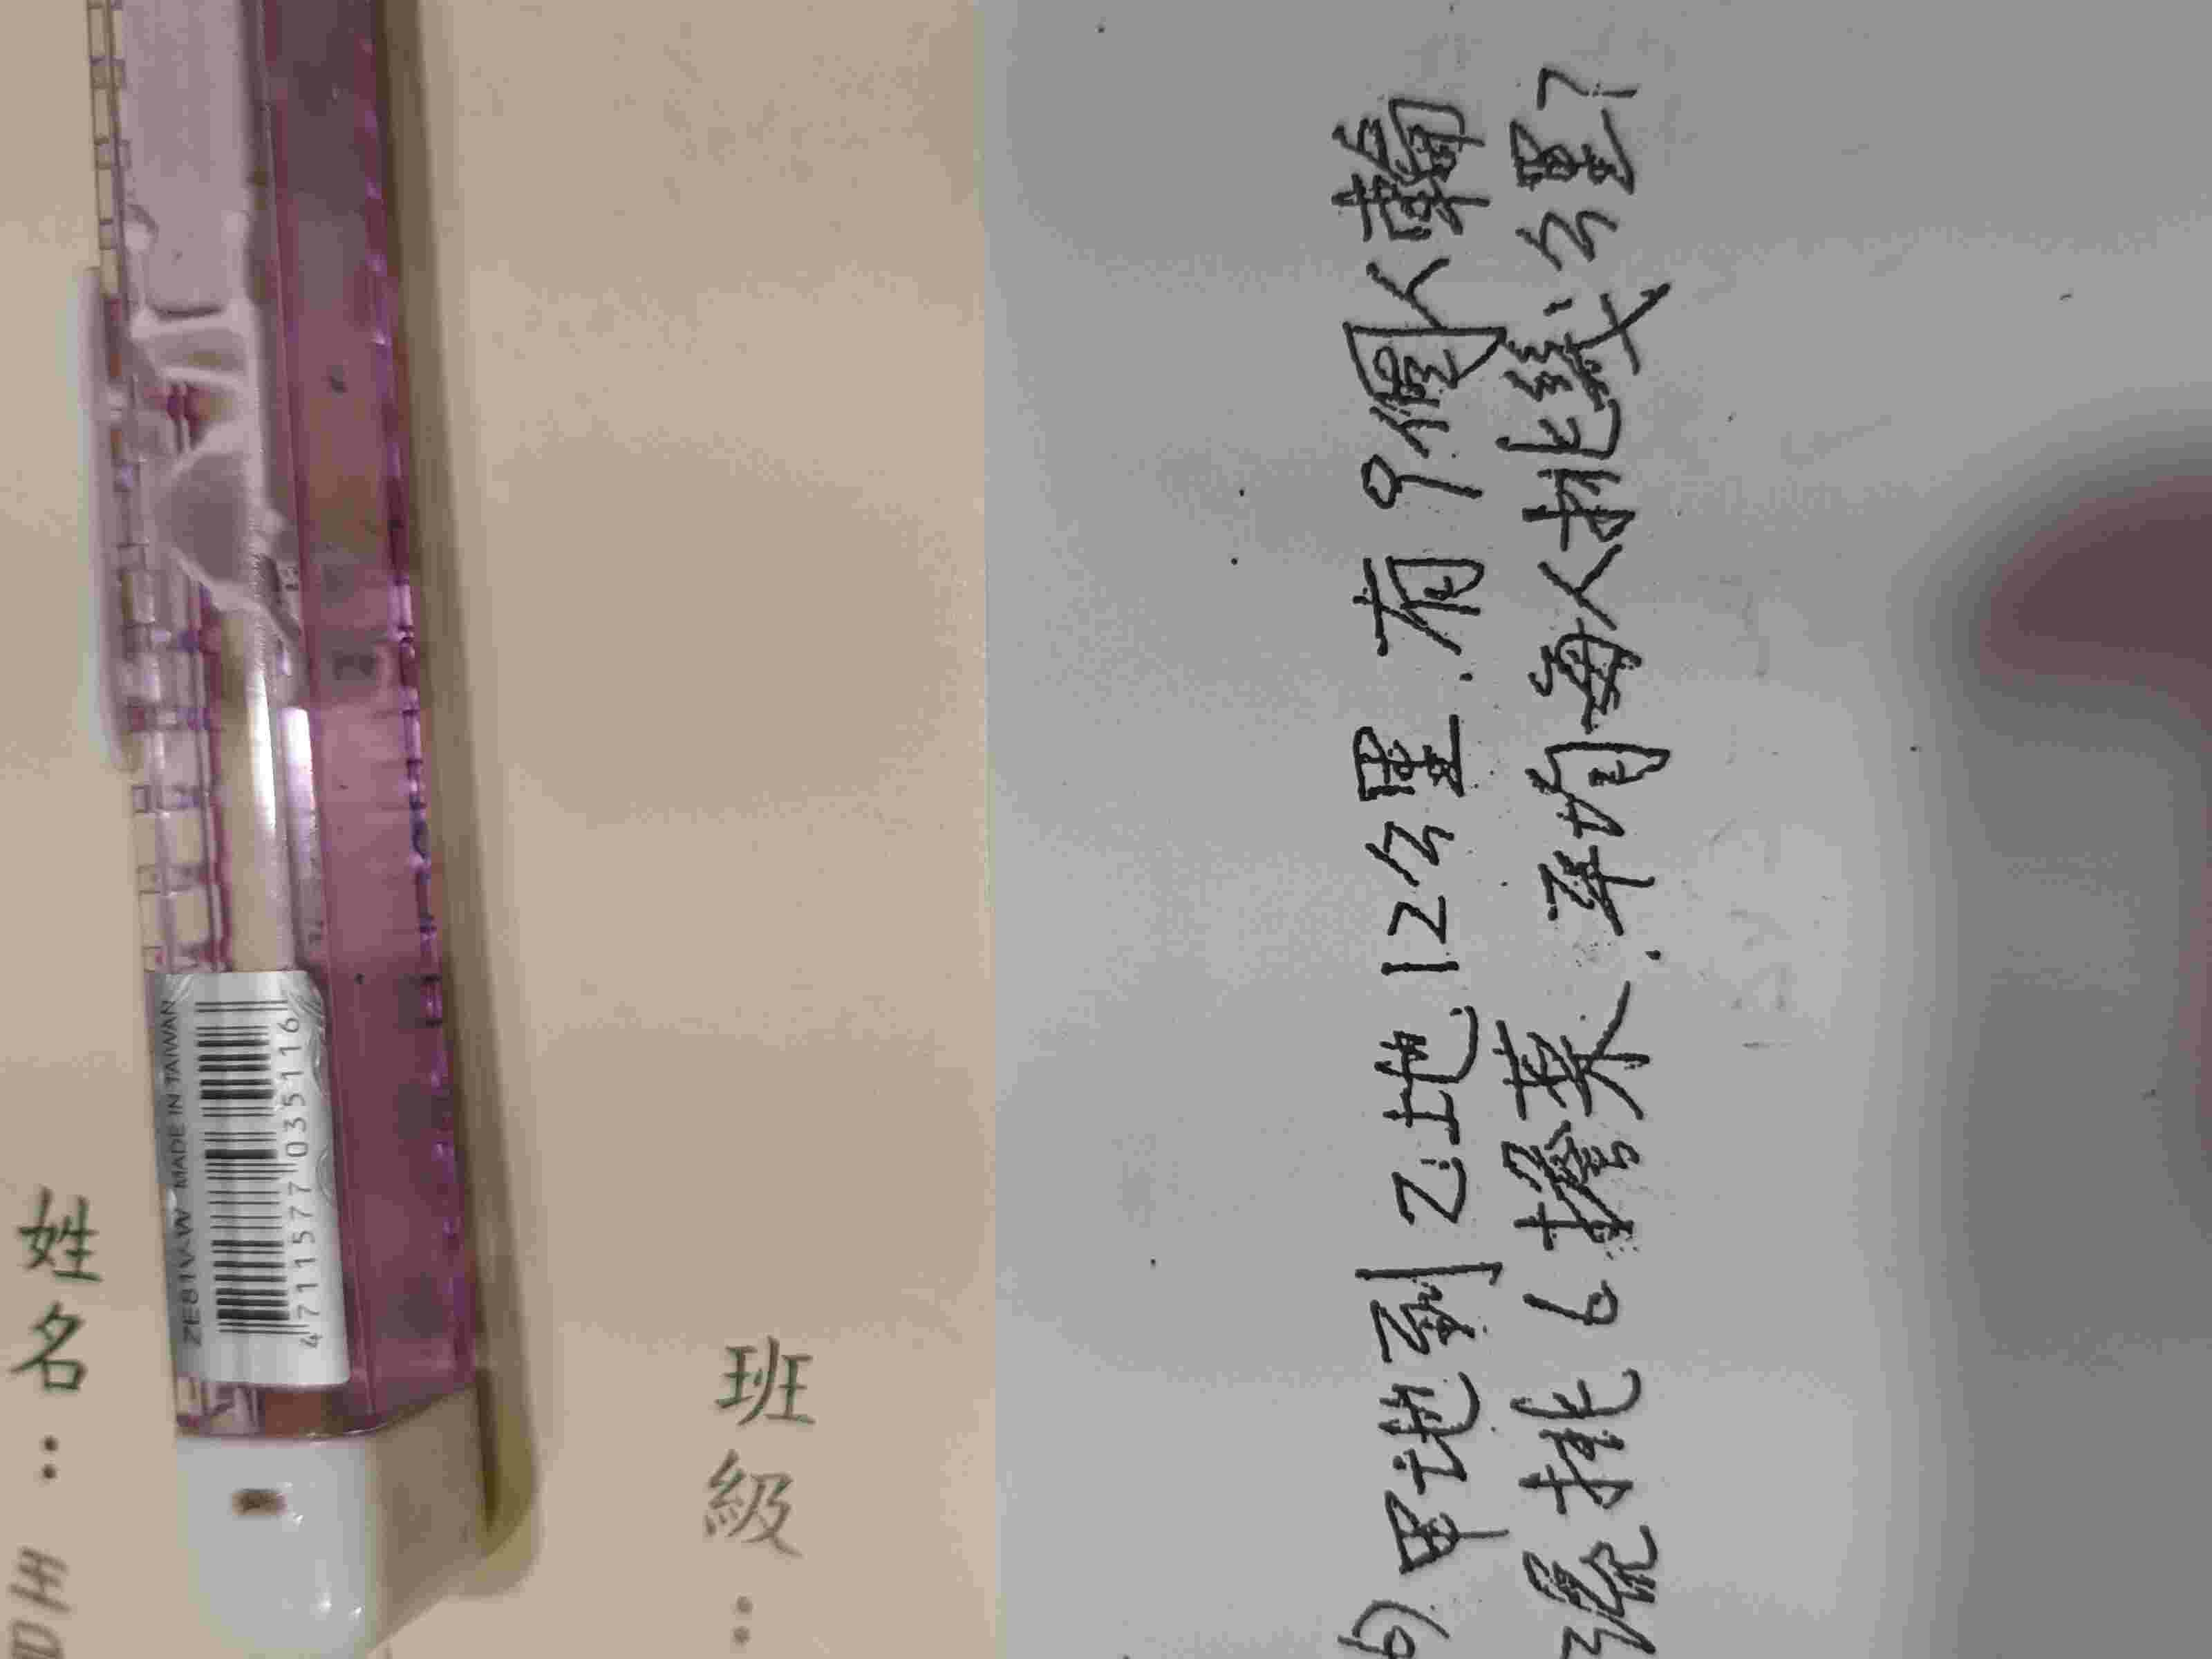 姓名：
ZE81VW MADE IN TAIWAN
4711577035116
班級：
6) 甲地到乙地12公里.有9個人輪
流挑6擔菜.平均每人挑幾公里?